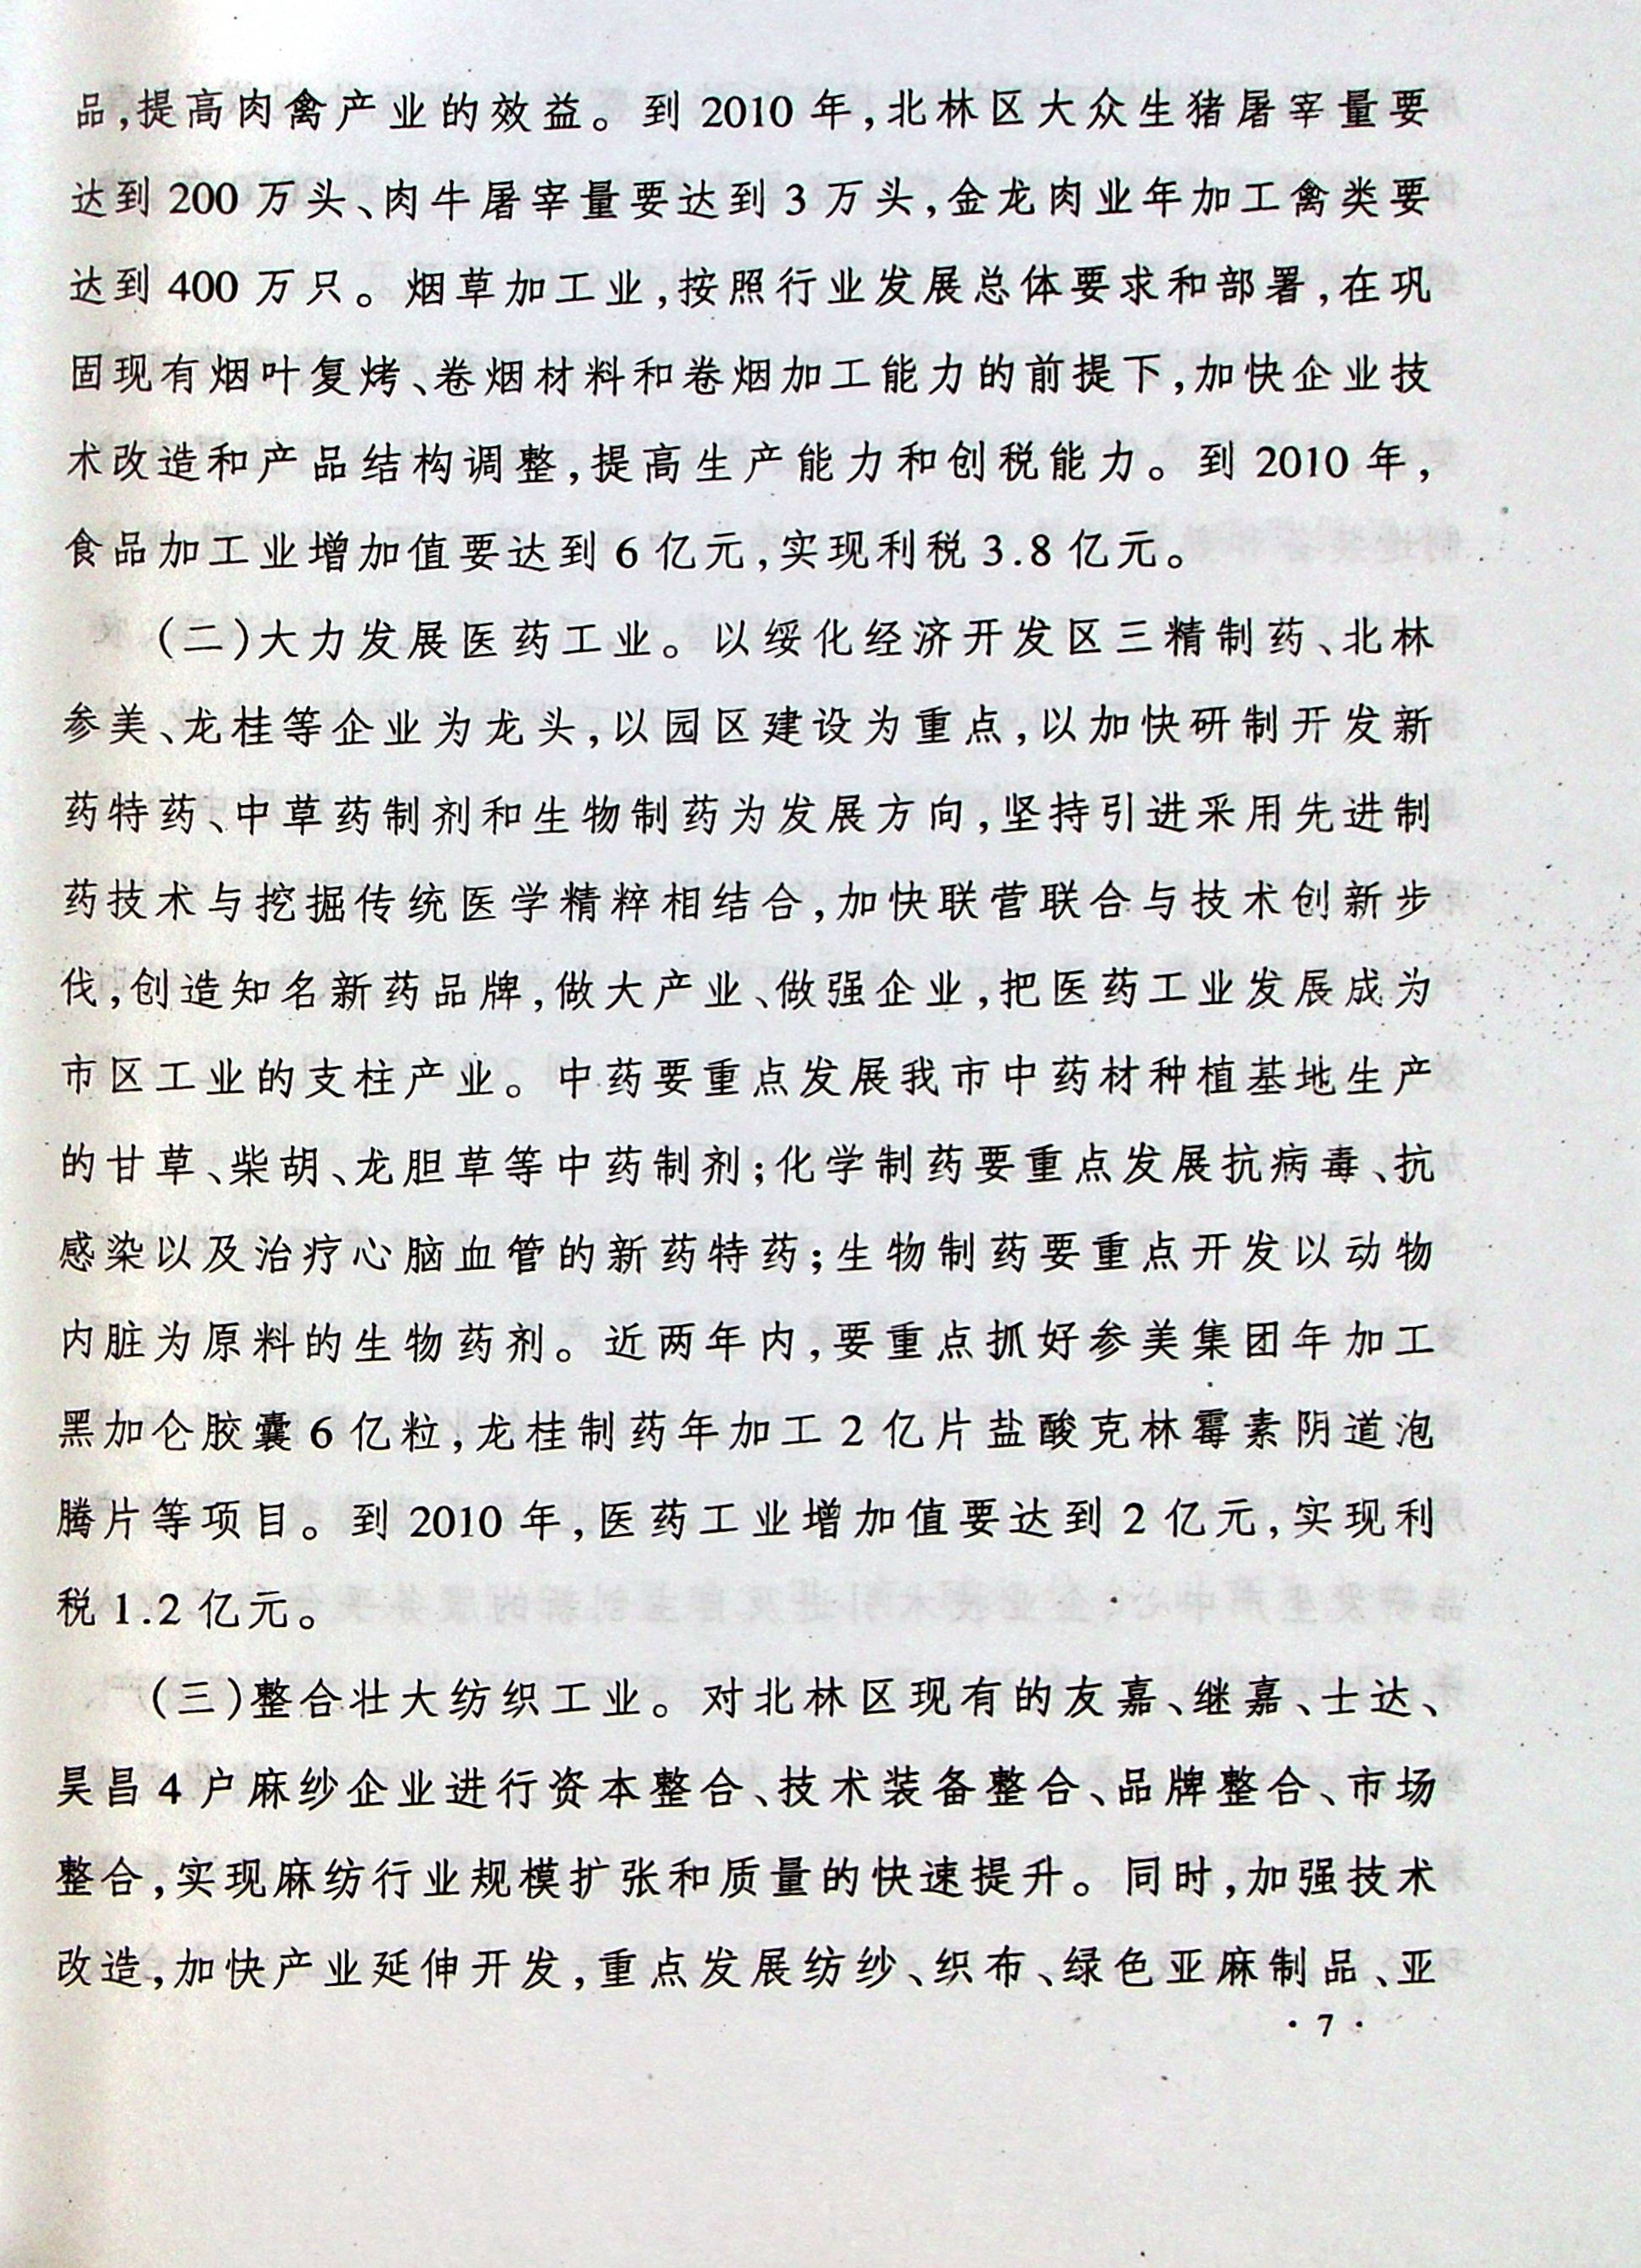 品,提高肉禽产业的效益。到 2010 年,北林区大众生猪屠宰量要
达到 200 万头、肉牛屠宰量要达到 3 万头,金龙肉业年加工禽类要
达到 400 万只。烟草加工业,按照行业发展总体要求和部署,在巩
固现有烟叶复烤、卷烟材料和卷烟加工能力的前提下,加快企业技
术改造和产品结构调整,提高生产能力和创税能力。到 2010 年,
食品加工业增加值要达到 6 亿元,实现利税 3.8 亿元。
(二)大力发展医药工业。以绥化经济开发区三精制药、北林
参美、龙桂等企业为龙头,以园区建设为重点,以加快研制开发新
药特药、中草药制剂和生物制药为发展方向,坚持引进采用先进制
药技术与挖掘传统医学精粹相结合,加快联营联合与技术创新步
伐,创造知名新药品牌,做大产业、做强企业,把医药工业发展成为
市区工业的支柱产业。中药要重点发展我市中药材种植基地生产
的甘草、柴胡、龙胆草等中药制剂;化学制药要重点发展抗病毒、抗
感染以及治疗心脑血管的新药特药;生物制药要重点开发以动物
内脏为原料的生物药剂。近两年内,要重点抓好参美集团年加工
黑加仑胶囊 6 亿粒,龙桂制药年加工 2 亿片盐酸克林霉素阴道泡
腾片等项目。到 2010 年,医药工业增加值要达到 2 亿元,实现利
税 1.2 亿元。
(三)整合壮大纺织工业。对北林区现有的友嘉、继嘉、士达、
昊昌 4 户麻纱企业进行资本整合、技术装备整合、品牌整合、市场
整合,实现麻纺行业规模扩张和质量的快速提升。同时,加强技术
改造,加快产业延伸开发,重点发展纺纱、织布、绿色亚麻制品、亚
· 7 ·